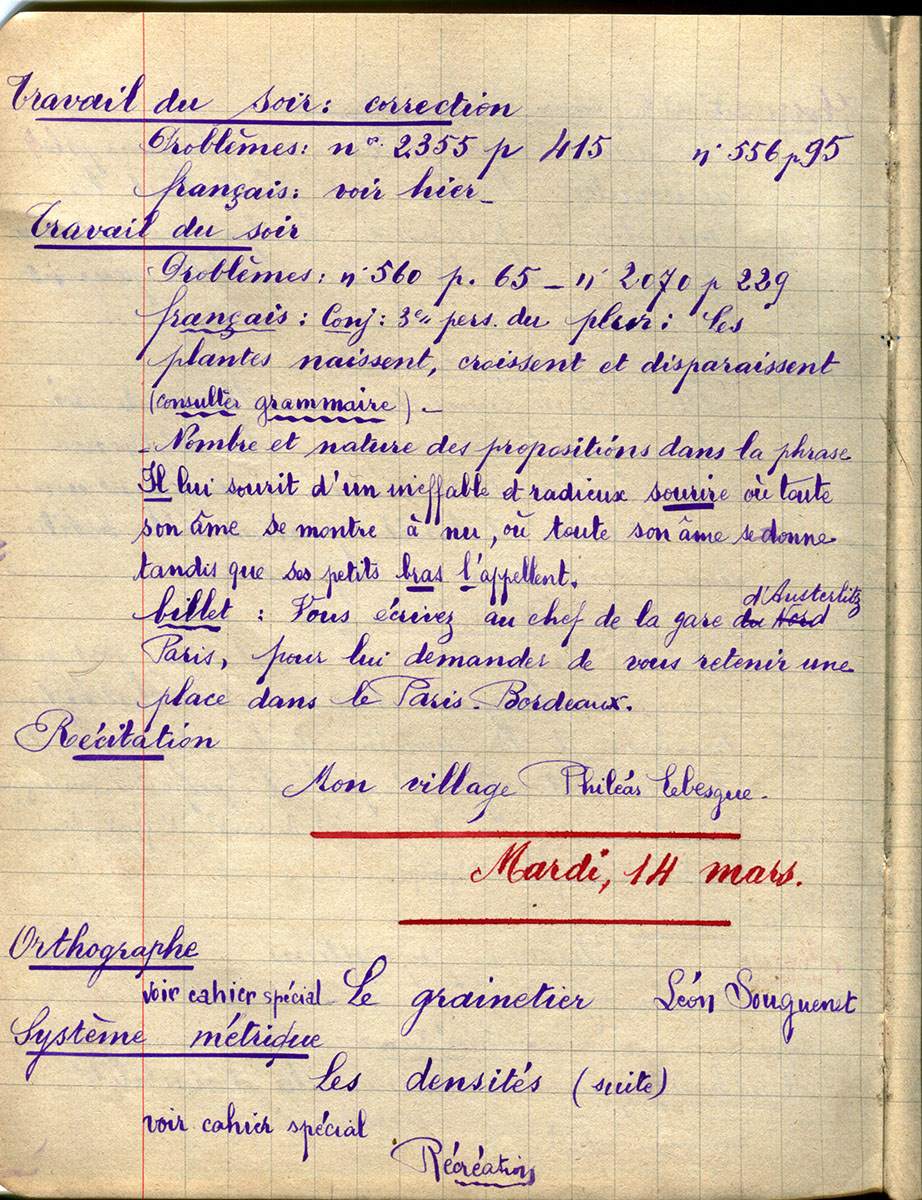 Travail du soir : correction
Problèmes : n° 2355 p 415 n° 556 p 95
français : voir hier_
Travail du soir
Problèmes : n° 560 p. 65 _ n° 2070 p 229
français : Conj : 3e pers. du plur : Les
plantes naissent, croissent et disparaissent
(consulter grammaire). _
_ Nombre et nature des propositions dans la phrase
Il lui sourit d'un ineffable et radieux sourire où toute
son âme se montre à nu, où toute son âme se donne
tandis que ses petits bras l'appellent.
billet : Vous écrivez au chef de la gare du Nord d'Austerlitz
Paris, pour lui demander de vous retenir une
place dans le Paris-Bordeaux.
Récitation
Mon village Philéas Lebesgue.
Mardi, 14 mars.
Orthographe
voir cahier spécial Le grainetier Léon Souguenet
Système métrique
Les densités (suite)
voir cahier spécial
Récréation